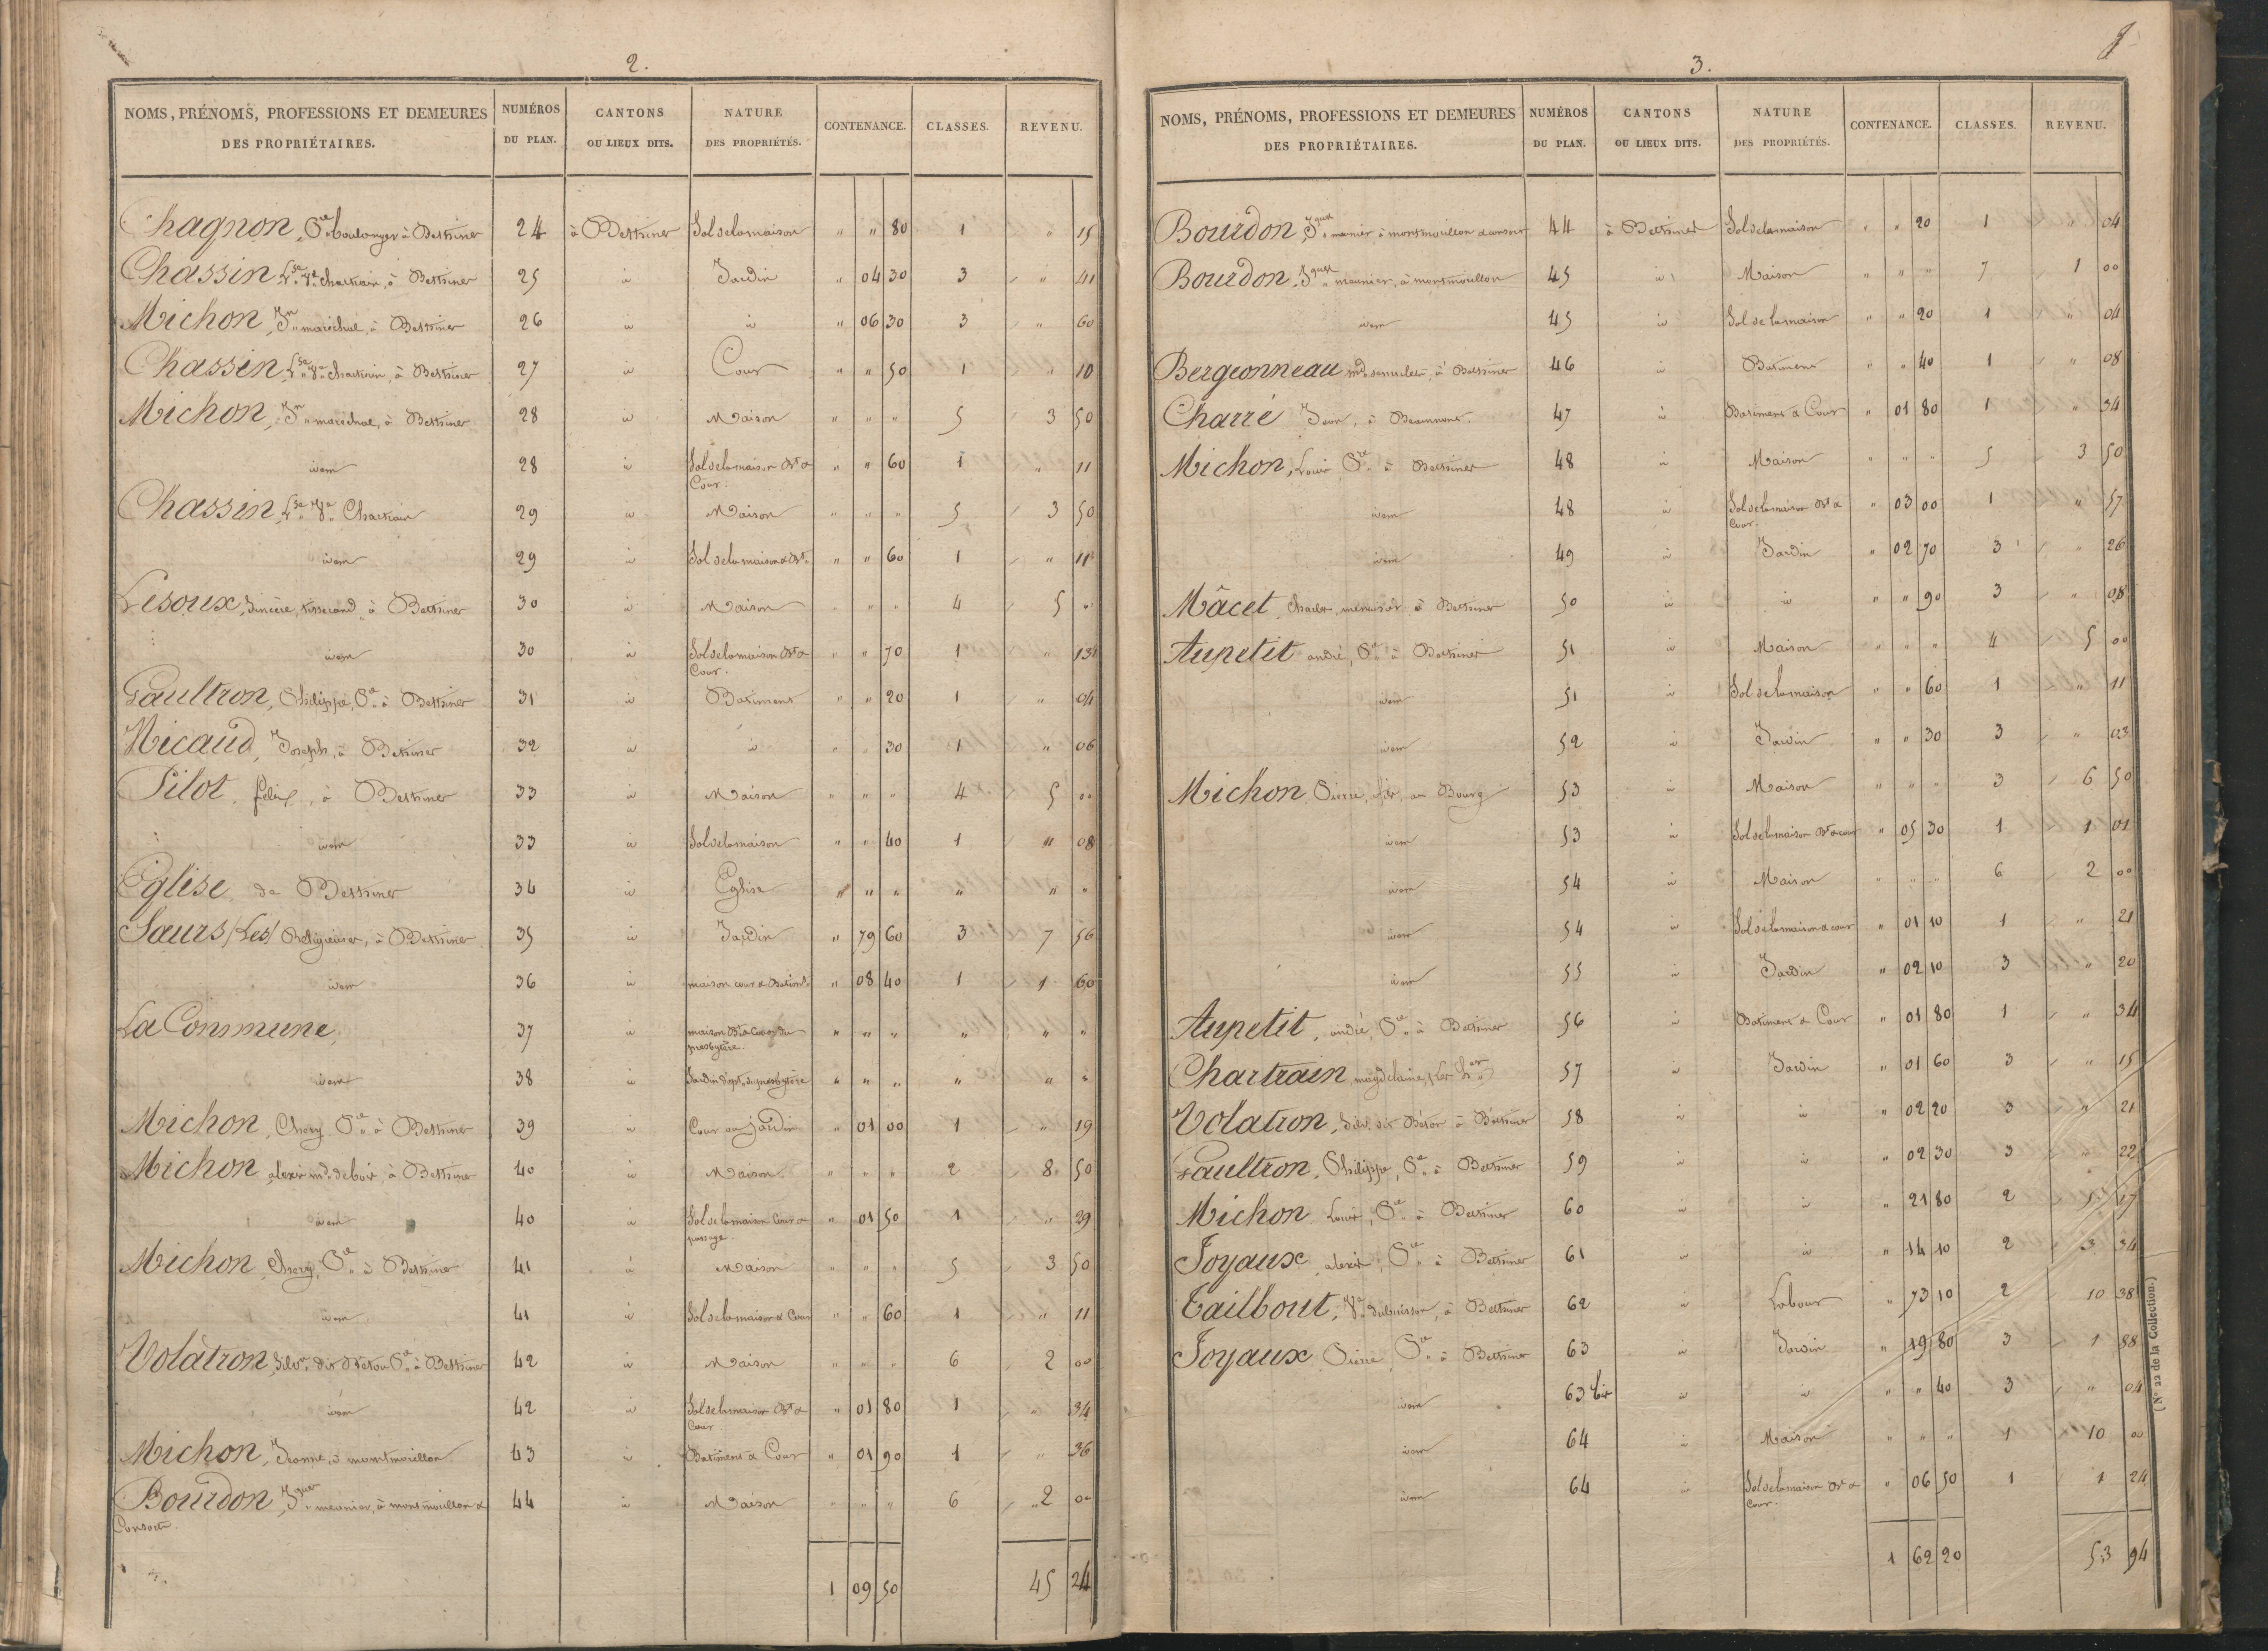 2.
NOMS, PRÉNOMS, PROFESSIONS ET DEMEURES DES PROPRIÉTAIRES. NUMÉROS DU PLAN. CANTONS OU LIEUX DITS. NATURE DES PROPRIÉTÉS. CONTENANCE. CLASSES. REVENU.
Chagnon, Pre boulanger à Bethines 24 à Bethines Sol de la maison " " 80 1 " 15
Chassin, Lse Ve Chartrain, à Bethines 25 id Jardin " 04 30 3 " 41
Michon, Jn maréchal, à Bethines 26 id id " 06 30 3 " 60
Chassin, Lse Ve Chartrain, à Bethines 27 id Cour " " 50 1 " 10
Michon, Jn maréchal, à Bethines 28 id Maison " " " 5 3 50
idem 28 id Sol de la maison Bt & Cour. " " 60 1 " 11
Chassin, Lse Ve Chartrain 29 id Maison " " " 5 3 50
idem 29 id Sol de la maison & Bt " " 60 1 " 11
Lesoux, Sincère, tisserand à Bethines 30 id Maison " " " 4 5 "
idem 30 id Sol de la maison Bt & Cour. " " 70 1 " 13
Gaultron, Philippe, Pre à Bethines 31 id Batiment " " 20 1 " 04
Nicaud, Joseph, à Bethines 32 id id " " 30 1 " 06
Pilot, félix, à Bethines 33 id Maison " " " 4 5 00
idem 33 id Sol de la maison " " 40 1 " 08
Eglise de Bethines 34 id Eglise " " " " " "
Sœurs (Les) Religieuses, à Bethines 35 id Jardin " 79 60 3 7 56
idem 36 id maison cour & Batimt " 08 40 1 1 60
La Commune, 37 id maison Bt & Cour du presbytère. " " " " " "
idem 38 id Jardin dépt du presbytère " " " " " "
Michon, Chery, Pre à Bethines 39 id Cour ou jardin " 01 00 1 " 19
Michon, alexis md de bois, à Bethines 40 id Maison " " " 2 8 50
idem 40 id Sol de la maison Cour & passage. " 01 50 1 " 29
Michon, Chery, Pre à Bethines 41 id Maison " " " 5 3 50
idem 41 id Sol de la maison & Cour " " 60 1 " 11
Volatron, Silvn dit Béson Pre à Bethines 42 id Maison " " " 6 2 00
idem 42 id Sol de la maison Bt & Cour " 01 80 1 " 34
Michon, Jeanne, à montmorillon 43 id Batiment & Cour " 01 90 1 " 36
Bourdon, Jques meunier, à montmorillon & Consorts 44 id Maison " " " 6 2 00
1 09 50 45 24
3.
NOMS, PRÉNOMS, PROFESSIONS ET DEMEURES DES PROPRIÉTAIRES. NUMÉROS DU PLAN. CANTONS OU LIEUX DITS. NATURE DES PROPRIÉTÉS. CONTENANCE. CLASSES. REVENU.
Bourdon, Jques meunier à montmorillon & consorts 44 à Bethines Sol de la maison " " 20 1 " 04
Bourdon, Jques meunier, à montmorillon 45 id Maison " " " 7 1 00
idem 45 id Sol de la maison " " 20 1 " 04
Bergeonneau, à Bethines 46 id Batiment " " 40 1 " 08
Charré Jean, à Beaumont. 47 id Batiment & Cour " 01 80 1 " 34
Michon, Louis Pre à Bethines 48 id Maison " " " 5 3 50
idem 48 id Sol de la maison Bt & Cour. " 03 00 1 " 57
idem 49 id Jardin " 02 70 3 " 26
Mâcet, Charles, menuisier à Bethines 50 id id " " 90 3 " 08
Aupetit andré, Pre à Bethines 51 id Maison " " " 4 5 00
idem 51 id Sol de la maison " " 60 1 " 11
idem 52 id Jardin " " 30 3 " 03
Michon, Pierre, fils, au Bourg 53 id Maison " " " 3 6 50
idem 53 id Sol de la maison Bt & cour " 05 30 1 1 01
idem 54 id Maison " " " 6 2 00
idem 54 id Sol de la maison & cour " 01 10 1 " 21
idem 55 id Jardin " 02 10 3 " 20
Aupetit, andré, Pre à Bethines 56 id Batiment & Cour " 01 80 1 " 34
Chartrain magdelaine, 57 id Jardin " 01 60 3 " 15
Volatron, Silv. dit Béson à Bethines 58 id id " 02 20 3 " 21
Gaultron, Philippe, Pre à Bethines 59 id id " 02 30 3 " 22
Michon Louis, Pre à Bethines 60 id id " 21 80 2 5 17
Joyaux, alexis, Pre à Bethines 61 id id " 14 10 2 3 34
Tailbout, Ve dubuisson, à Bethines 62 id Labour " 73 10 2 10 38
Joyaux Pierre, Pre à Bethines 63 id Jardin " 19 80 3 1 88
idem 63 bis id id " " 40 3 " 04
idem 64 id Maison " " " 1 10 00
idem 64 id Sol de la maison Bt & Cour. " 06 50 1 1 24
1 62 20 53 94
(N° 22 de la Collection.)